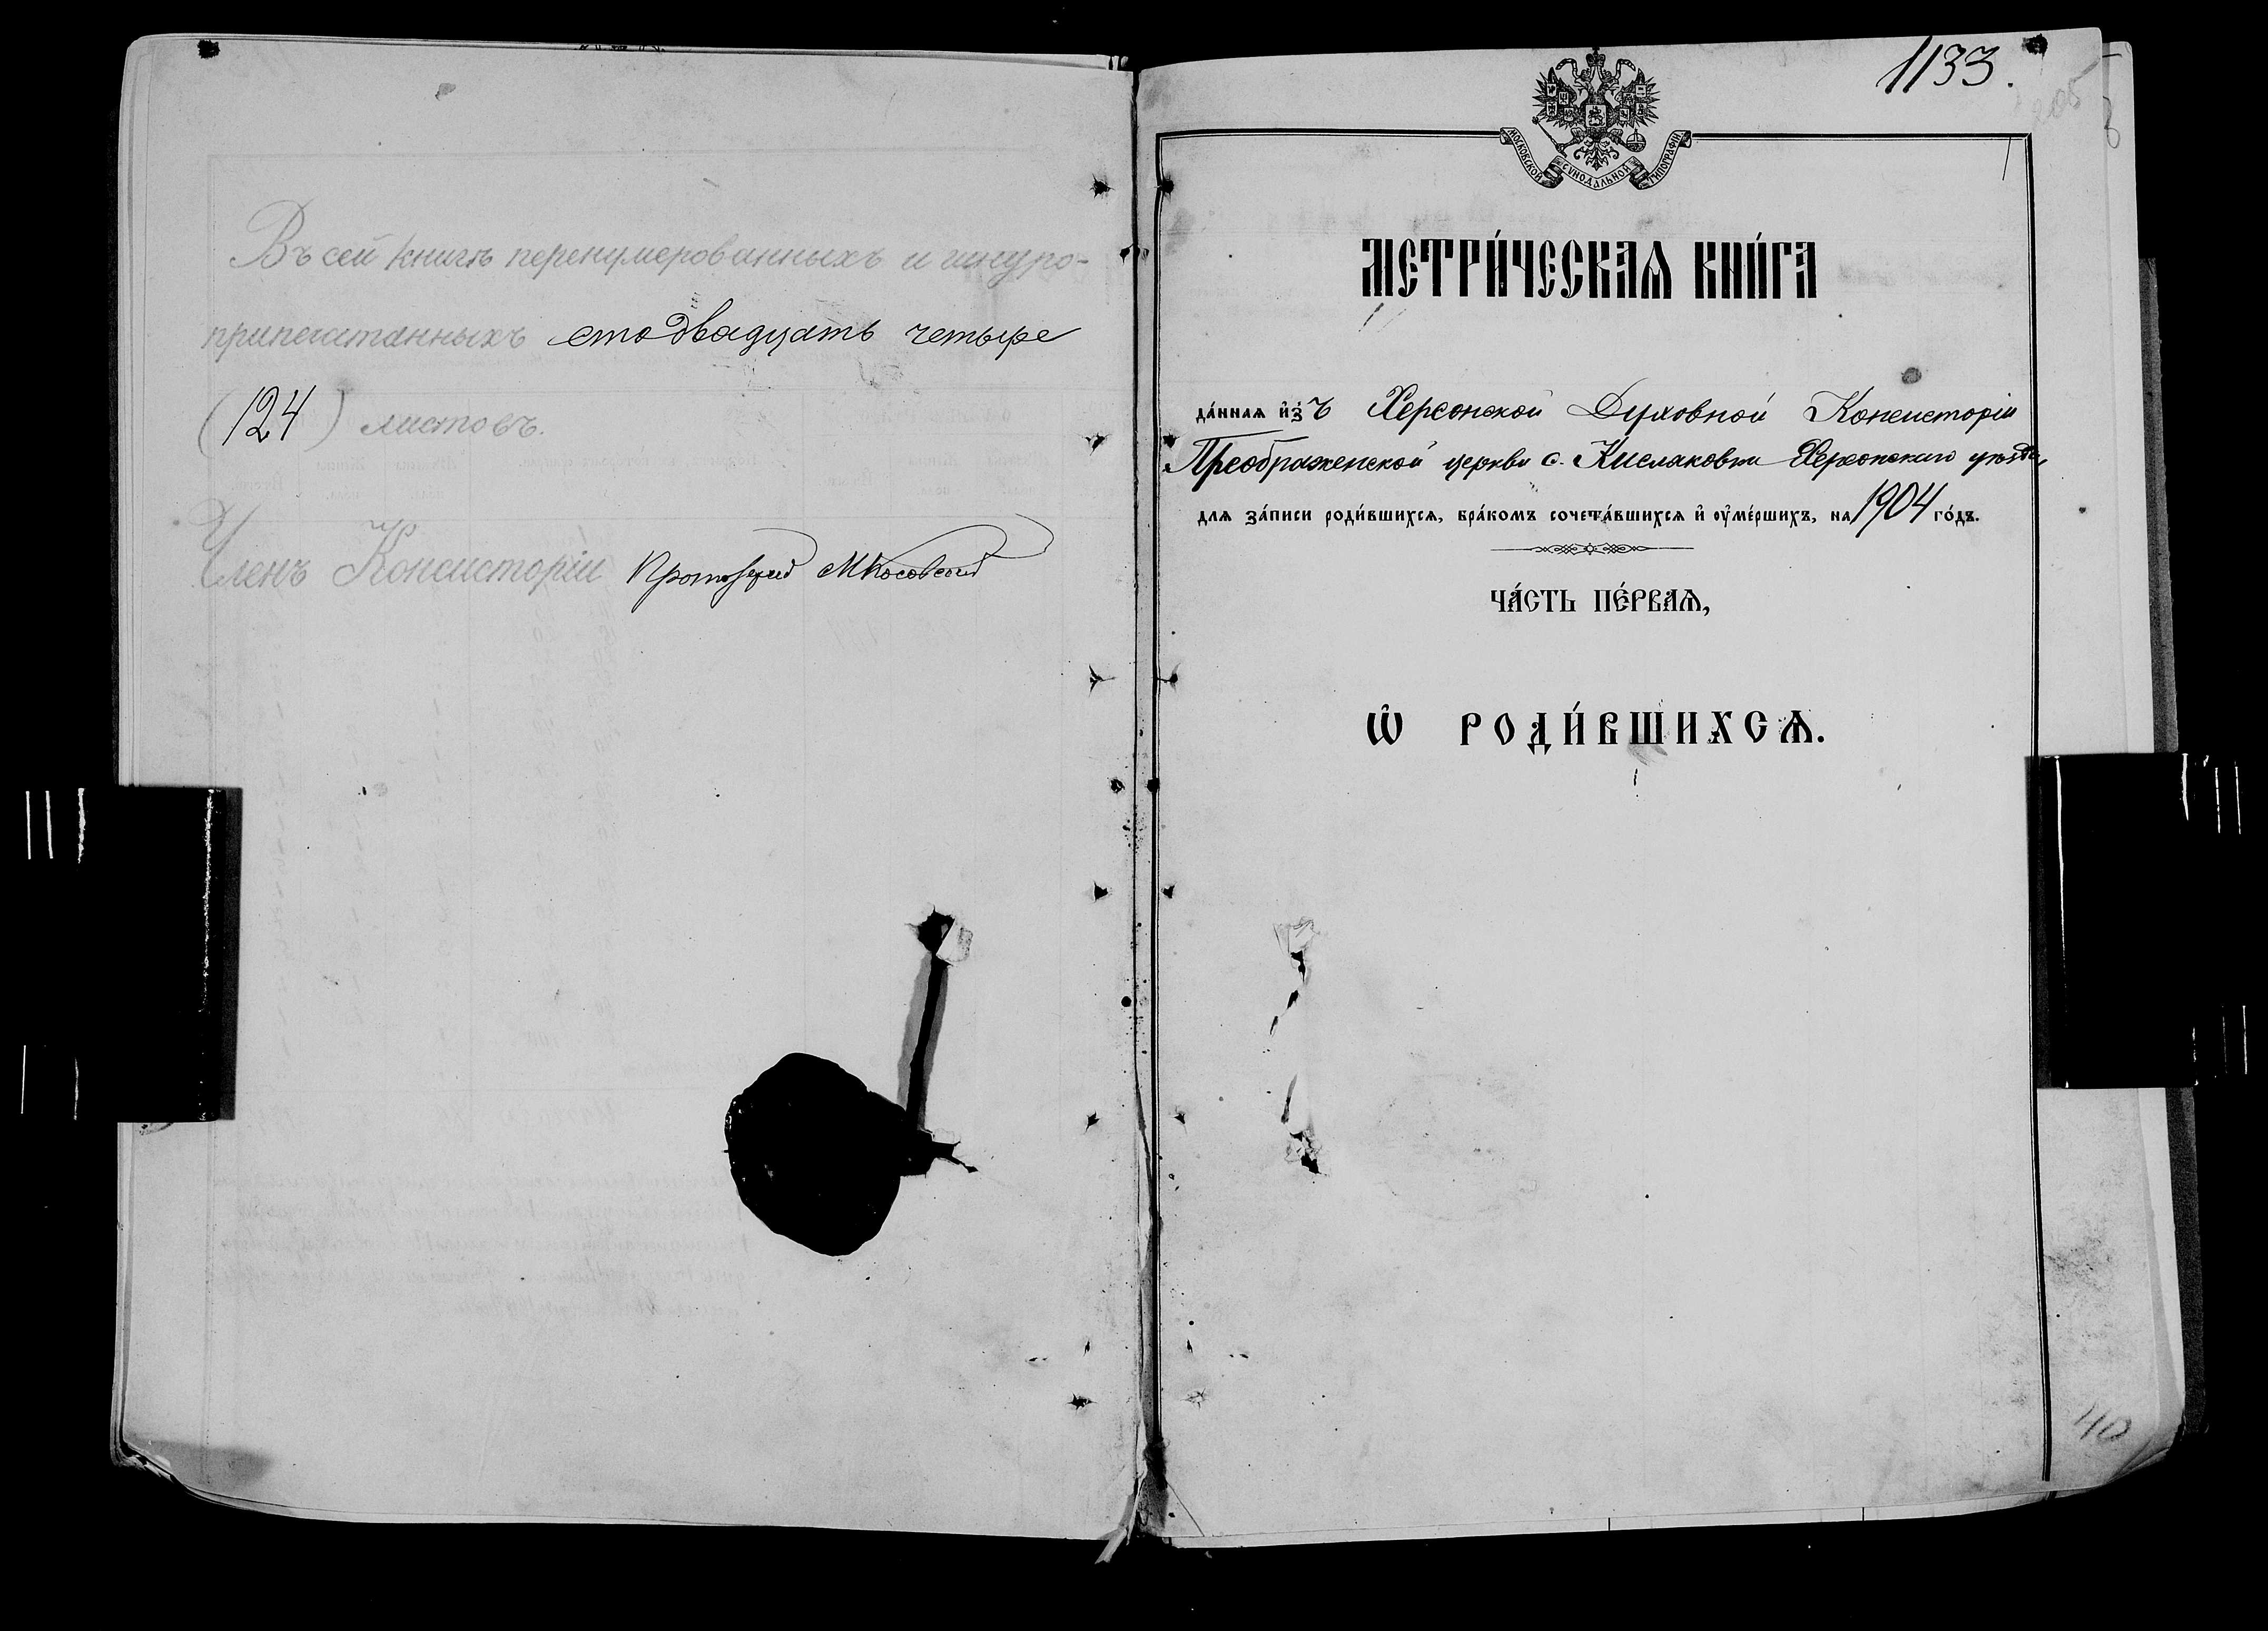 Въ сей книгѣ перенумерованныхъ и шнуро-
припечатанныхъ сто двадцать четыре
(124) листовъ.
Членъ Консисторіи Протоіерей
1133.
МОСКОВСКОЙ СѴНОДАЛЬНОЙ ТИПОГРАФІИ
1
МЕТРИ́ЧЕСКАѦ КНИ́ГА
да́нная и҆зъ Херсонской Духовной Консисторіи
Преображенской церкви с. Кислаковки Херсонскаго уѣзда,
для за́писи роди́вшихсѧ, бра́комъ сочета́вшихсѧ и҆ оу҆ме́ршихъ, на 1904 го́дъ.
ЧА́СТЬ ПЕ́РВАѦ,
Ѡ҆ РОДИ́ВШИХСѦ.
40